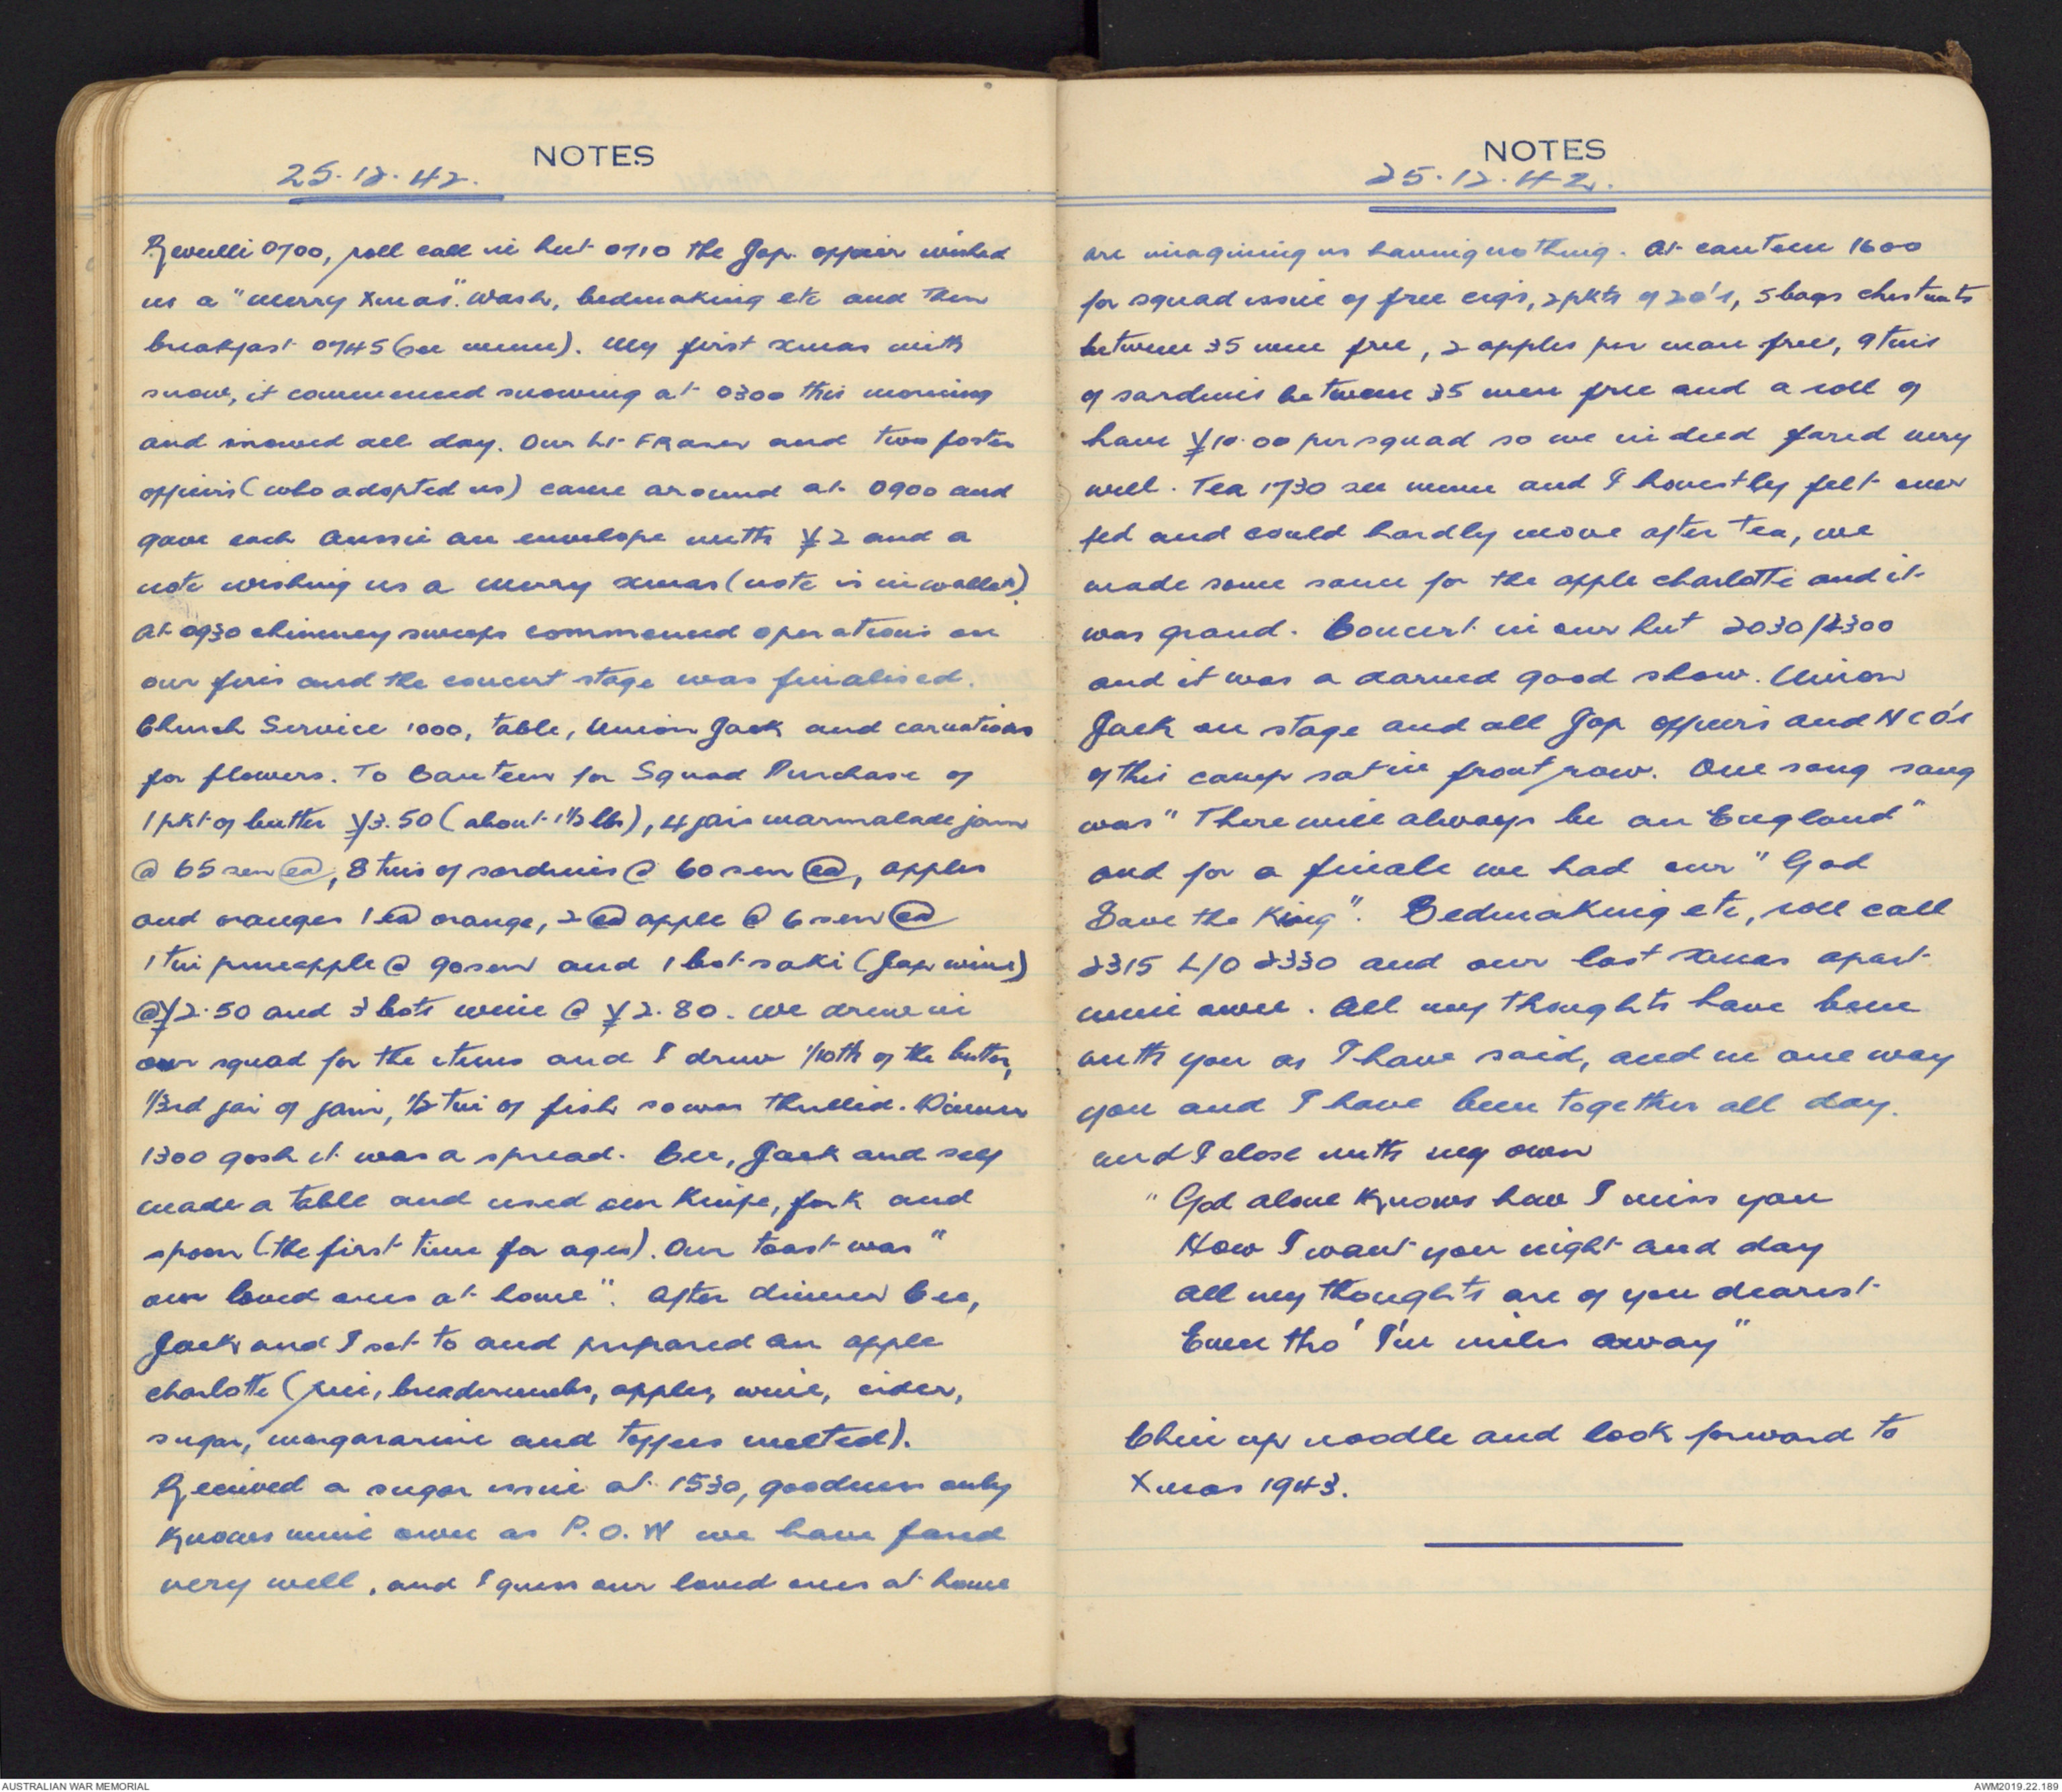 NOTES
25.12.42.
Reveilli 0700, roll call in hut 0710 the Jap. officer wished
us a "merry Xmas". Wash, bedmaking etc and then
breakfast 0745 (see menu). My first xmas with
snow, it commenced snowing at 0300 this morning
and snowed all day. Our Lt FRaser and two foster
officers (who adopted us) came around at 0900 and
gave each Aussie an envelope with ¥2 and a
note wishing us a merry xmas (note is in wallet).
At 0930 chimney sweeps commenced operations on
our fires and the concert stage was finalised.
Church Service 1000, table, Union Jack and carnations
for flowers. To Canteen for Squad Purchase of
1 pkt of butter ¥3.50 (about 1½ lbs), 4 jars marmalade jam
@ 65 sen ea, 8 tins of sardines @ 60 sen ea, apples
and oranges 1 ea orange, 2 ea apple @ 6 sen ea
1 tin pineapple @ 90 sen and 1 bot saki (Jap wine)
@ ¥2.50 and 3 bots wine @ ¥2.80. We drew in
our squad for the items and I drew 1/10th of the butter,
1/3rd jar of jam, ½ tin of fish so was thrilled. Dinner
1300 gosh it was a spread. Cec, Jack and self
made a table and used our knife, fork and
spoon (the first time for ages). Our toast was "
our loved ones at home". After dinner Cec,
Jack and I set to and prepared an apple
charlotte (rice, breadcrumbs, apples, wine, cider,
sugar, margararine and toffees melted).
Received a sugar issue at 1530, goodness only
knows mine own as P.O.W we have fared
very well, and I guess our loved ones at home
NOTES
25.12.42.
are imagining us having nothing. At canteen 1600
for squad issue of free cigs, 2 pkts of 20's, 5 bags chestnuts
between 35 were free, 2 apples per man free, 9 tins
of sardines between 35 were free and a roll of
have ¥10.00 per squad so we indeed fared very
well. Tea 1730 see menu and I honestly felt over
fed and could hardly move after tea, we
made some sauce for the apple charlotte and it
was grand. Concert in our hut 2030/2300
and it was a darned good show. Union
Jack on stage and all Jap officers and NCO's
of this camp sat in front row. One song sang
was "There will always be an England"
and for a finale we had our "God
Save the King". Bedmaking etc, roll call
2315 L/O 2330 and our last Xmas apart
mine own. All my thoughts have been
with you as I have said, and in one way
you and I have been together all day.
and I close with my own
"God alone knows how I miss you
How I want you night and day
All my thoughts are of you dearest
Even tho' I'm miles away"
Chin up noodle and look forward to
Xmas 1943.
AUSTRALIAN WAR MEMORIAL
AWM2019.22.189